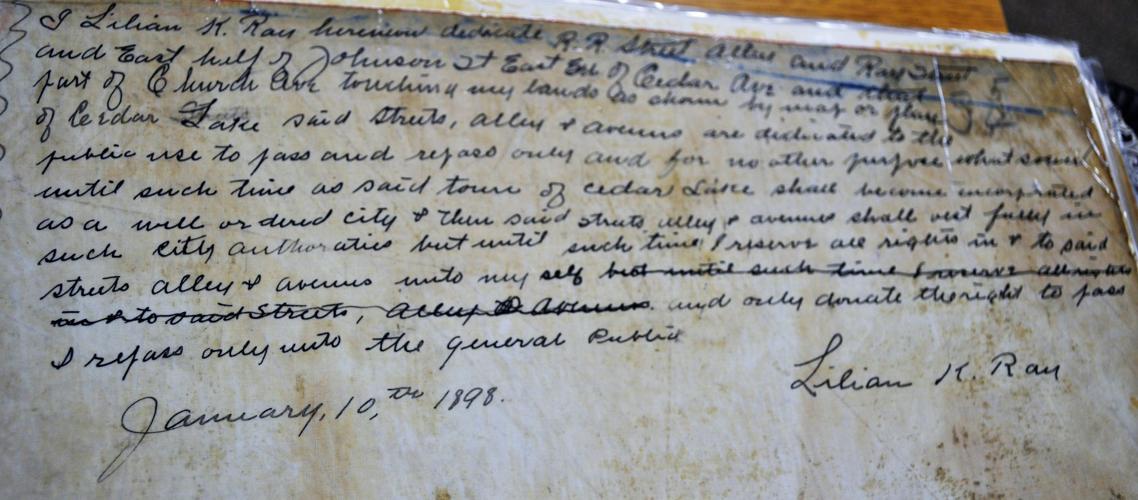 I Lilian K. Ray hereinow dedicate R.R Street Alley and Ray Street
and East half of Johnson St East End of Cedar Ave and that
part of Church Ave touching my lands as shown by map or plan
of Cerdar Lake said Streets, alley & avenues are dedicated to the
public use to pass and repass only and for no other purpose whatsoever
until such time as said town of cedar Lake shall become incorporated
as a well ordered city & then said streets alley & avenues shall vest fully in
such City authoraties but until such time I reserve all rights in & to said
streets alley & avenues unto my self but until such time I reserve all rights
in & to said Streets, Alley & Avenues. and only donate the right to pass
& repass only unto the general Public
Lilian K. Ray
January, 10,th 1898.